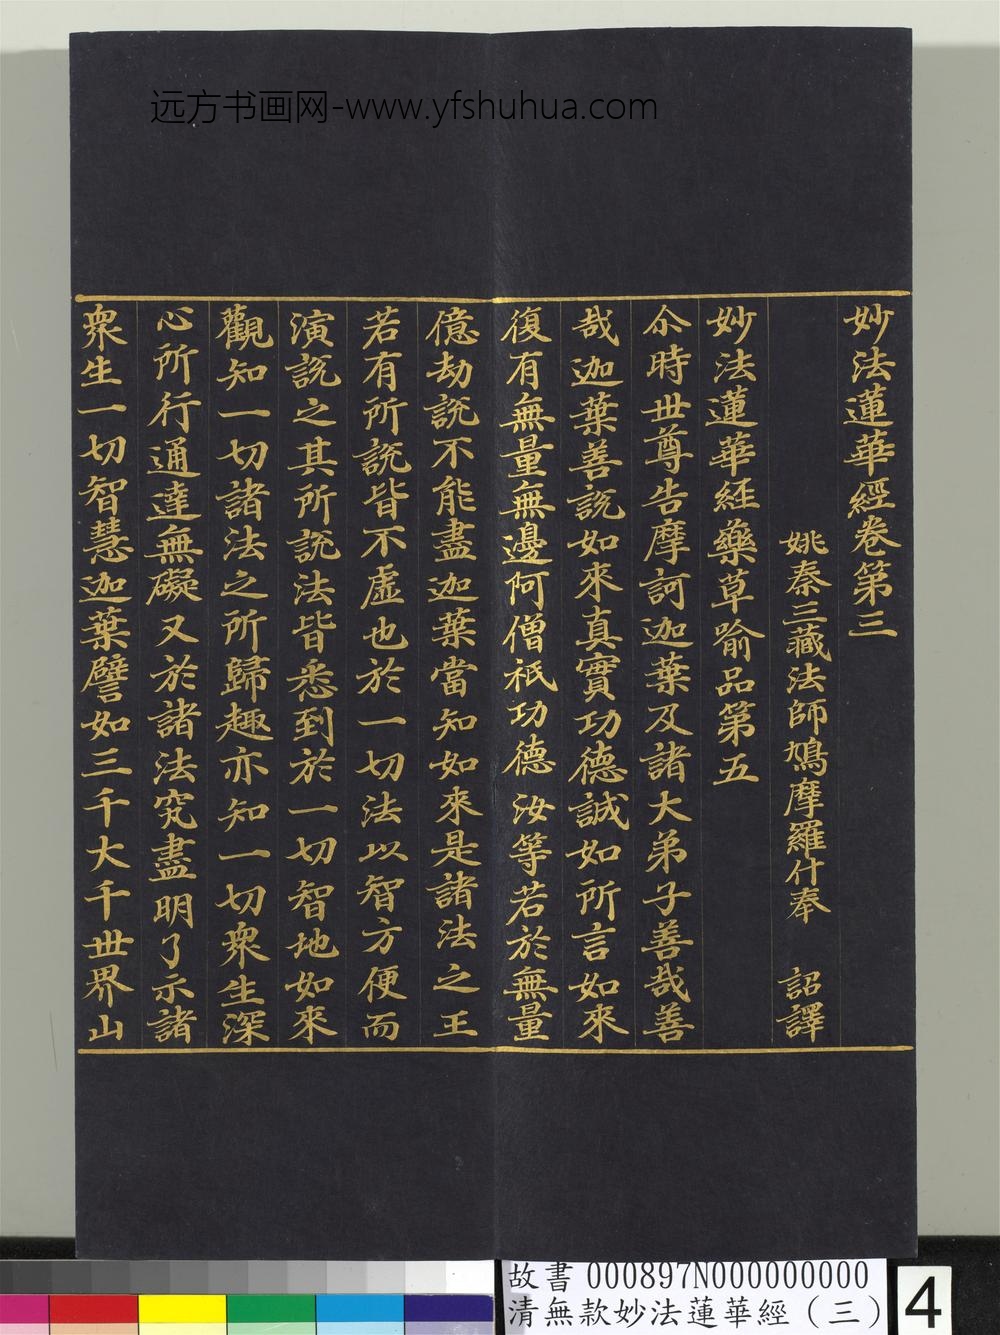 远方书画网-www.yfshuhua.com
妙法蓮華經卷第三
姚秦三藏法師鳩摩羅什奉 詔譯
妙法蓮華經藥草喻品第五
尒時世尊告摩訶迦葉及諸大弟子善哉善
哉迦葉善說如來真實功德誠如所言如來
復有無量無邊阿僧祇功德汝等若於無量
億劫說不能盡迦葉當知如來是諸法之王
若有所說皆不虛也於一切法以智方便而
演說之其所說法皆悉到於一切智地如來
觀知一切諸法之所歸趣亦知一切眾生深
心所行通達無礙又於諸法究盡明了示諸
眾生一切智慧迦葉譬如三千大千世界山
故書 000897N000000000
清無款妙法蓮華經（三）
4